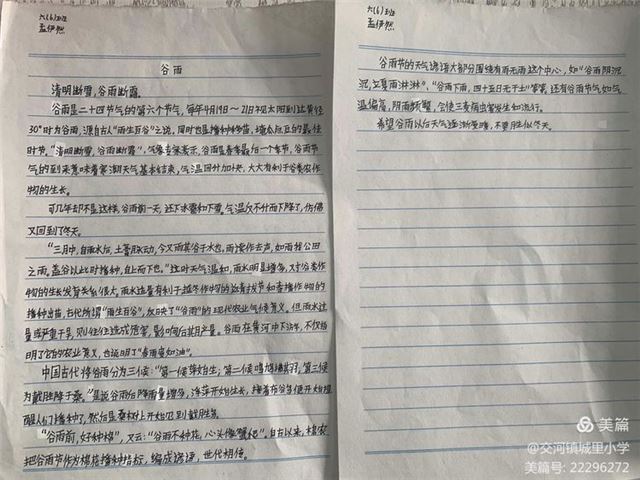 六(6)班
孟伊然
谷雨
清明断雪，谷雨断霜。
谷雨是二十四节气的第六个节气，每年4月19~21日视太阳到达黄经
30°时为谷雨，源自古人"雨生百谷"之说，同时也是播种移苗、埯瓜点豆的最佳
时节。"清明断雪，谷雨断霜"，气象专家表示，谷雨是春季最后一个节气，谷雨节
气的到来意味着寒潮天气基本结束，气温回升加快，大大有利于谷类农作
物的生长。
可几年却不是这样，谷雨前一天，还下冰雹和下雪。气温仅不分而下降了，仿佛
又回到了冬天。
"三月中，自雨水后，土膏脉动，今又雨其谷于水也。雨读作去声，如雨我公田
之雨。盖谷以此时播种，自上而下也。"这时天气温和，雨水明显增多，对谷类作
物的生长发育关系很大。雨水适量有利于越冬作物的返青拔节和春播作物的
播种出苗。古代所谓"雨生百谷"，反映了"谷雨"的现代农业气候意义。但雨水过
量或严重干旱，则往往造成危害，影响后期产量。谷雨在黄河中下游，不仅指
明了它的农业意义，也说明了"春雨贵如油"。
中国古代将谷雨分为三候："第一候萍始生；第二候鸣鸠拂其羽；第三候
为戴胜降于桑。"是说谷雨后降雨量增多，浮萍开始生长，接着布谷鸟便开始提
醒人们播种了，然后是桑树上开始见到戴胜鸟。
"谷雨前，好种棉"，又云："谷雨不种花，心头像蟹爬"。自古以来，棉农
把谷雨节作为棉花播种指标，编成谚语，世代相传。
六(6)班
孟伊然
谷雨节的天气谚语大部分围绕有雨无雨这个中心，如"谷雨阴沉
沉，立夏雨淋淋"、"谷雨下雨，四十五日无干土"等等，还有谷雨节气如气
温偏高，阴雨频繁，会使三麦病虫害发生和流行。
希望谷雨以后天气逐渐变暖，不要胜似冬天。
美篇
@交河镇城里小学
美篇号: 22296272